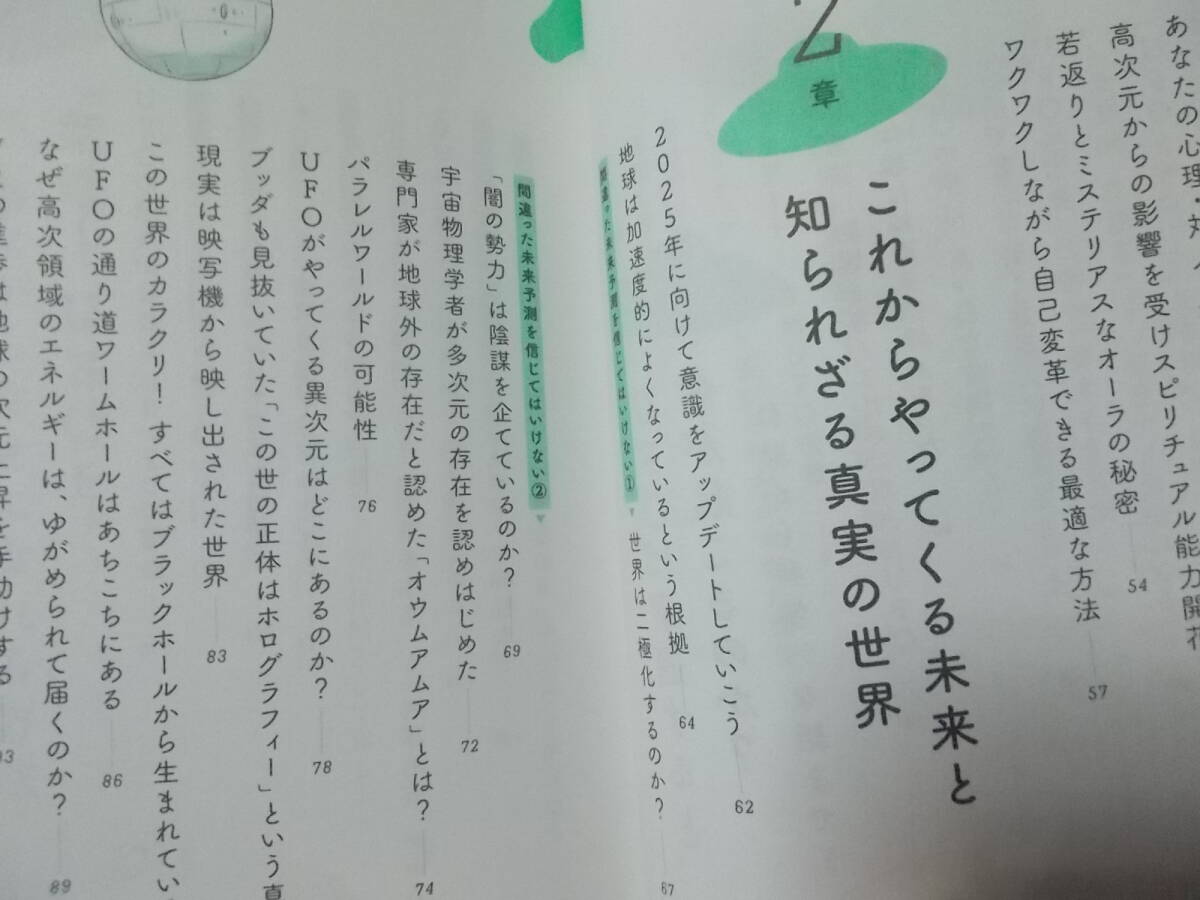 あなたの心理・
高次元からの影響を受けスピリチュアル能力開花
若返りとミステリアスなオーラの秘密 54
ワクワクしながら自己変革できる最適な方法 57
2章
これからやってくる未来と
知られざる真実の世界
2025年に向けて意識をアップデートしていこう 62
地球は加速度的によくなっているという根拠 64
間違った未来予測を信じてはいけない① 世界は二極化するのか? 67
間違った未来予測を信じてはいけない②
「闇の勢力」は陰謀を企てているのか? 69
宇宙物理学者が多次元の存在を認めはじめた 72
専門家が地球外の存在だと認めた「オウムアムア」とは? 74
パラレルワールドの可能性 76
UFOがやってくる異次元はどこにあるのか? 78
ブッダも見抜いていた「この世の正体はホログラフィー」という真
現実は映写機から映し出された世界 83
この世界のカラクリ! すべてはブラックホールから生まれてい
UFOの通り道ワームホールはあちこちにある 86
なぜ高次領域のエネルギーは、ゆがめられて届くのか? 89
は地球の次元上昇を手助けする 93